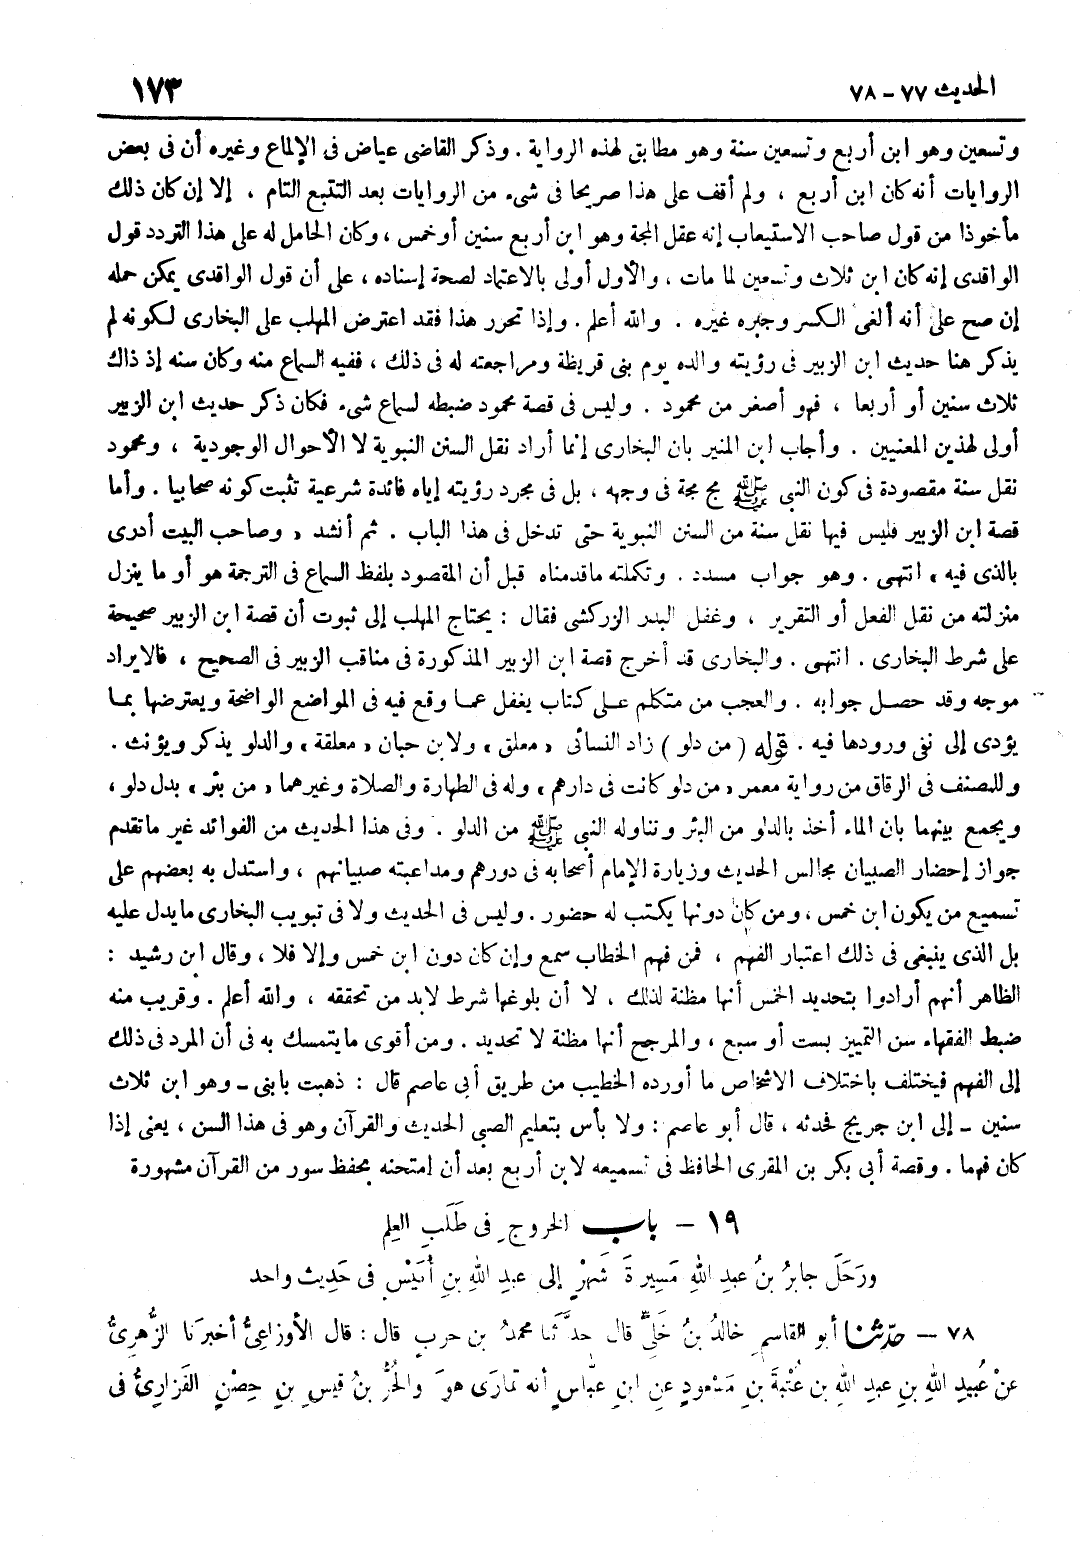 الحديث ٧٧ - ٧٨
١٧٣
وتسعين وهو ابن أربع وتسعين سنة وهو مطابق لهذه الرواية . وذكر القاضى عياض فى الإلماع وغيره أن فى بعض
الروايات أنه كان ابن أربع ، ولم أقف على هذا صريحا فى شىء من الروايات بعد التتبع التام ، إلا إن كان ذلك
مأخوذا من قول صاحب الاستيعاب إنه عقل المجة وهو ابن أربع سنين أو خمس ، وكان الحامل له على هذا التردد قول
الواقدى إنه كان ابن ثلاث وتسعين لما مات ، والأول أولى بالاعتماد لصحة إسناده ، على أن قول الواقدى يمكن حمله
إن صح على أنه ألغى الكسر وجبره غيره . والله أعلم . وإذا تحرر هذا فقد اعترض المهلب على البخارى لكونه لم
يذكر هنا حديث ابن الزبير فى رؤيته والده يوم بنى قريظة ومراجعته له فى ذلك ، ففيه السماع منه وكان سنه إذ ذاك
ثلاث سنين أو أربعا ، فهو أصغر من محمود . وليس فى قصة محمود ضبطه لسماع شىء فكان ذكر حديث ابن الزبير
أولى لهذين المعنيين . وأجاب ابن المنير بان البخارى إنما أراد نقل السنن النبوية لا الأحوال الوجودية ، ومحمود
نقل سنة مقصودة فى كون النبى ﷺ مج مجة فى وجهه ، بل فى مجرد رؤيته إياه فائدة شرعية تثبت كونه صحابيا . وأما
قصة ابن الزبير فليس فيها نقل سنة من السنن النبوية حتى تدخل فى هذا الباب . ثم أنشد « وصاحب البيت أدرى
بالذى فيه » انتهى . وهو جواب مسدد . وتكملته ما قدمناه قبل أن المقصود بلفظ السماع فى الترجمة هو أو ما ينزل
منزلته من نقل الفعل أو التقرير ، وغفل البدر الزركشى فقال : يحتاج المهلب إلى ثبوت أن قصة ابن الزبير صحيحة
على شرط البخارى . انتهى . والبخارى قد أخرج قصة ابن الزبير المذكورة فى مناقب الزبير فى الصحيح ، فالايراد
موجه وقد حصل جوابه . والعجب من متكلم على كتاب يغفل عما وقع فيه فى المواضع الواضحة ويعترضها بما
يؤدى إلى نفى ورودها فيه . قوله ( من دلو ) زاد النسائى « معلق » ولابن حبان « معلقة » والدلو يذكر ويؤنث .
وللمصنف فى الرقاق من رواية معمر « من دلو كانت فى دارهم » وله فى الطهارة والصلاة وغيرهما « من بئر » بدل دلو ،
ويجمع بينهما بان الماء أخذ بالدلو من البئر وتناوله النبى ﷺ من الدلو . وفى هذا الحديث من الفوائد غير ما تقدم
جواز إحضار الصبيان مجالس الحديث وزيارة الإمام أصحابه فى دورهم ومداعبته صبيانهم ، واستدل به بعضهم على
تسميع من يكون ابن خمس ، ومن كان دونها يكتب له حضور . وليس فى الحديث ولا فى تبويب البخارى ما يدل عليه
بل الذى ينبغى فى ذلك اعتبار الفهم ، فمن فهم الخطاب سمع وإن كان دون ابن خمس وإلا فلا ، وقال ابن رشيد :
الظاهر أنهم أرادوا بتحديد الخمس أنها مظنة لذلك ، لا أن بلوغها شرط لابد من تحققه ، والله أعلم . وقريب منه
ضبط الفقهاء سن التمييز بست أو سبع ، والمرجح أنها مظنة لا تحديد . ومن أقوى ما يتمسك به فى أن المرد فى ذلك
إلى الفهم فيختلف باختلاف الاشخاص ما أورده الخطيب من طريق أبى عاصم قال : ذهبت بابنى - وهو ابن ثلاث
سنين - إلى ابن جريج فحدثه ، قال أبو عاصم : ولا بأس بتعليم الصبى الحديث والقرآن وهو فى هذا السن ، يعنى إذا
كان فهما . وقصة أبى بكر بن المقرى الحافظ فى تسميعه لابن أربع بعد أن امتحنه بحفظ سور من القرآن مشهورة
١٩ - باب الخروج فى طَلَبِ العِلم
ورَحَلَ جابرُ بنُ عبدِ اللهِ مَسِيرةَ شَهْرٍ إلى عبدِ اللهِ بنِ أُنَيْسٍ فى حَدِيث واحد
٧٨ - حدّثنا أبو القاسمِ خالدُ بنُ خَلِيٍّ قال حدَّثَنا محمدُ بن حربٍ قال : قال الأوزاعىُّ أخبرَنا الزُّهرىُّ
عنْ عُبيدِ اللهِ بنِ عبدِ اللهِ بن عُتْبةَ بنِ مَسْعودٍ عنِ ابنِ عبّاسٍ أنه تمارَى هوَ والحُرُّ بنُ قيسِ بنِ حِصْنٍ الفَزارِىُّ فى